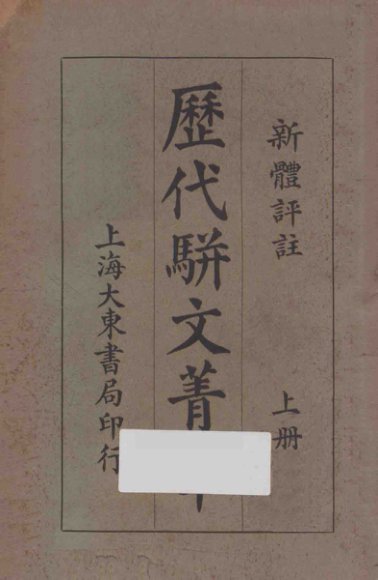 新體評註 上册
歷代駢文菁
上海大東書局印行